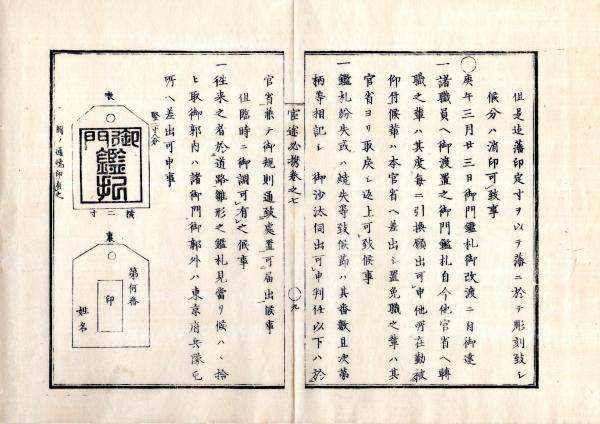 但是迄藩印定寸ヲ以テ藩ニ於テ彫刻致シ
候分ハ消印可致事
〇庚午三月廿三日御門鑑札御改渡ニ付御達
一諸職員ヘ御渡置之御門鑑札自今他官省ヘ轉
職之輩ハ其度毎ニ引換願出可申他所在勤被
仰付候輩ハ本官省ヘ差出シ置免職之輩ハ其
官省ヨリ取戻シ返上可致候事
一鑑札紛失或ハ燒失等致候節ハ其番數且次第
柄等相記シ御沙汰伺出可申判任以下ハ於
官途必携卷之七
九
官省兼テ御規則通致處置可届出候事
但臨時ニ御調可有之候事
一往來之者於道路雛形之鑑札見當リ候ハヽ拾
ヒ取御郭内ハ諸御門御郭外ハ東京府兵隊屯
所ヘ差出可申事
竪二寸八分
表
御門鑑札
横二寸
裏
第何番
印
姓名